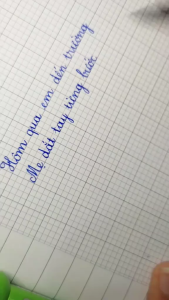 Hôm qua em đến trường
Mẹ dắt tay từng bước